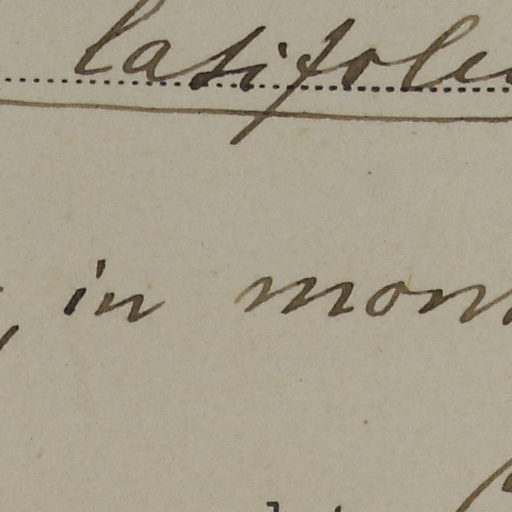 latifoliu
, in mon